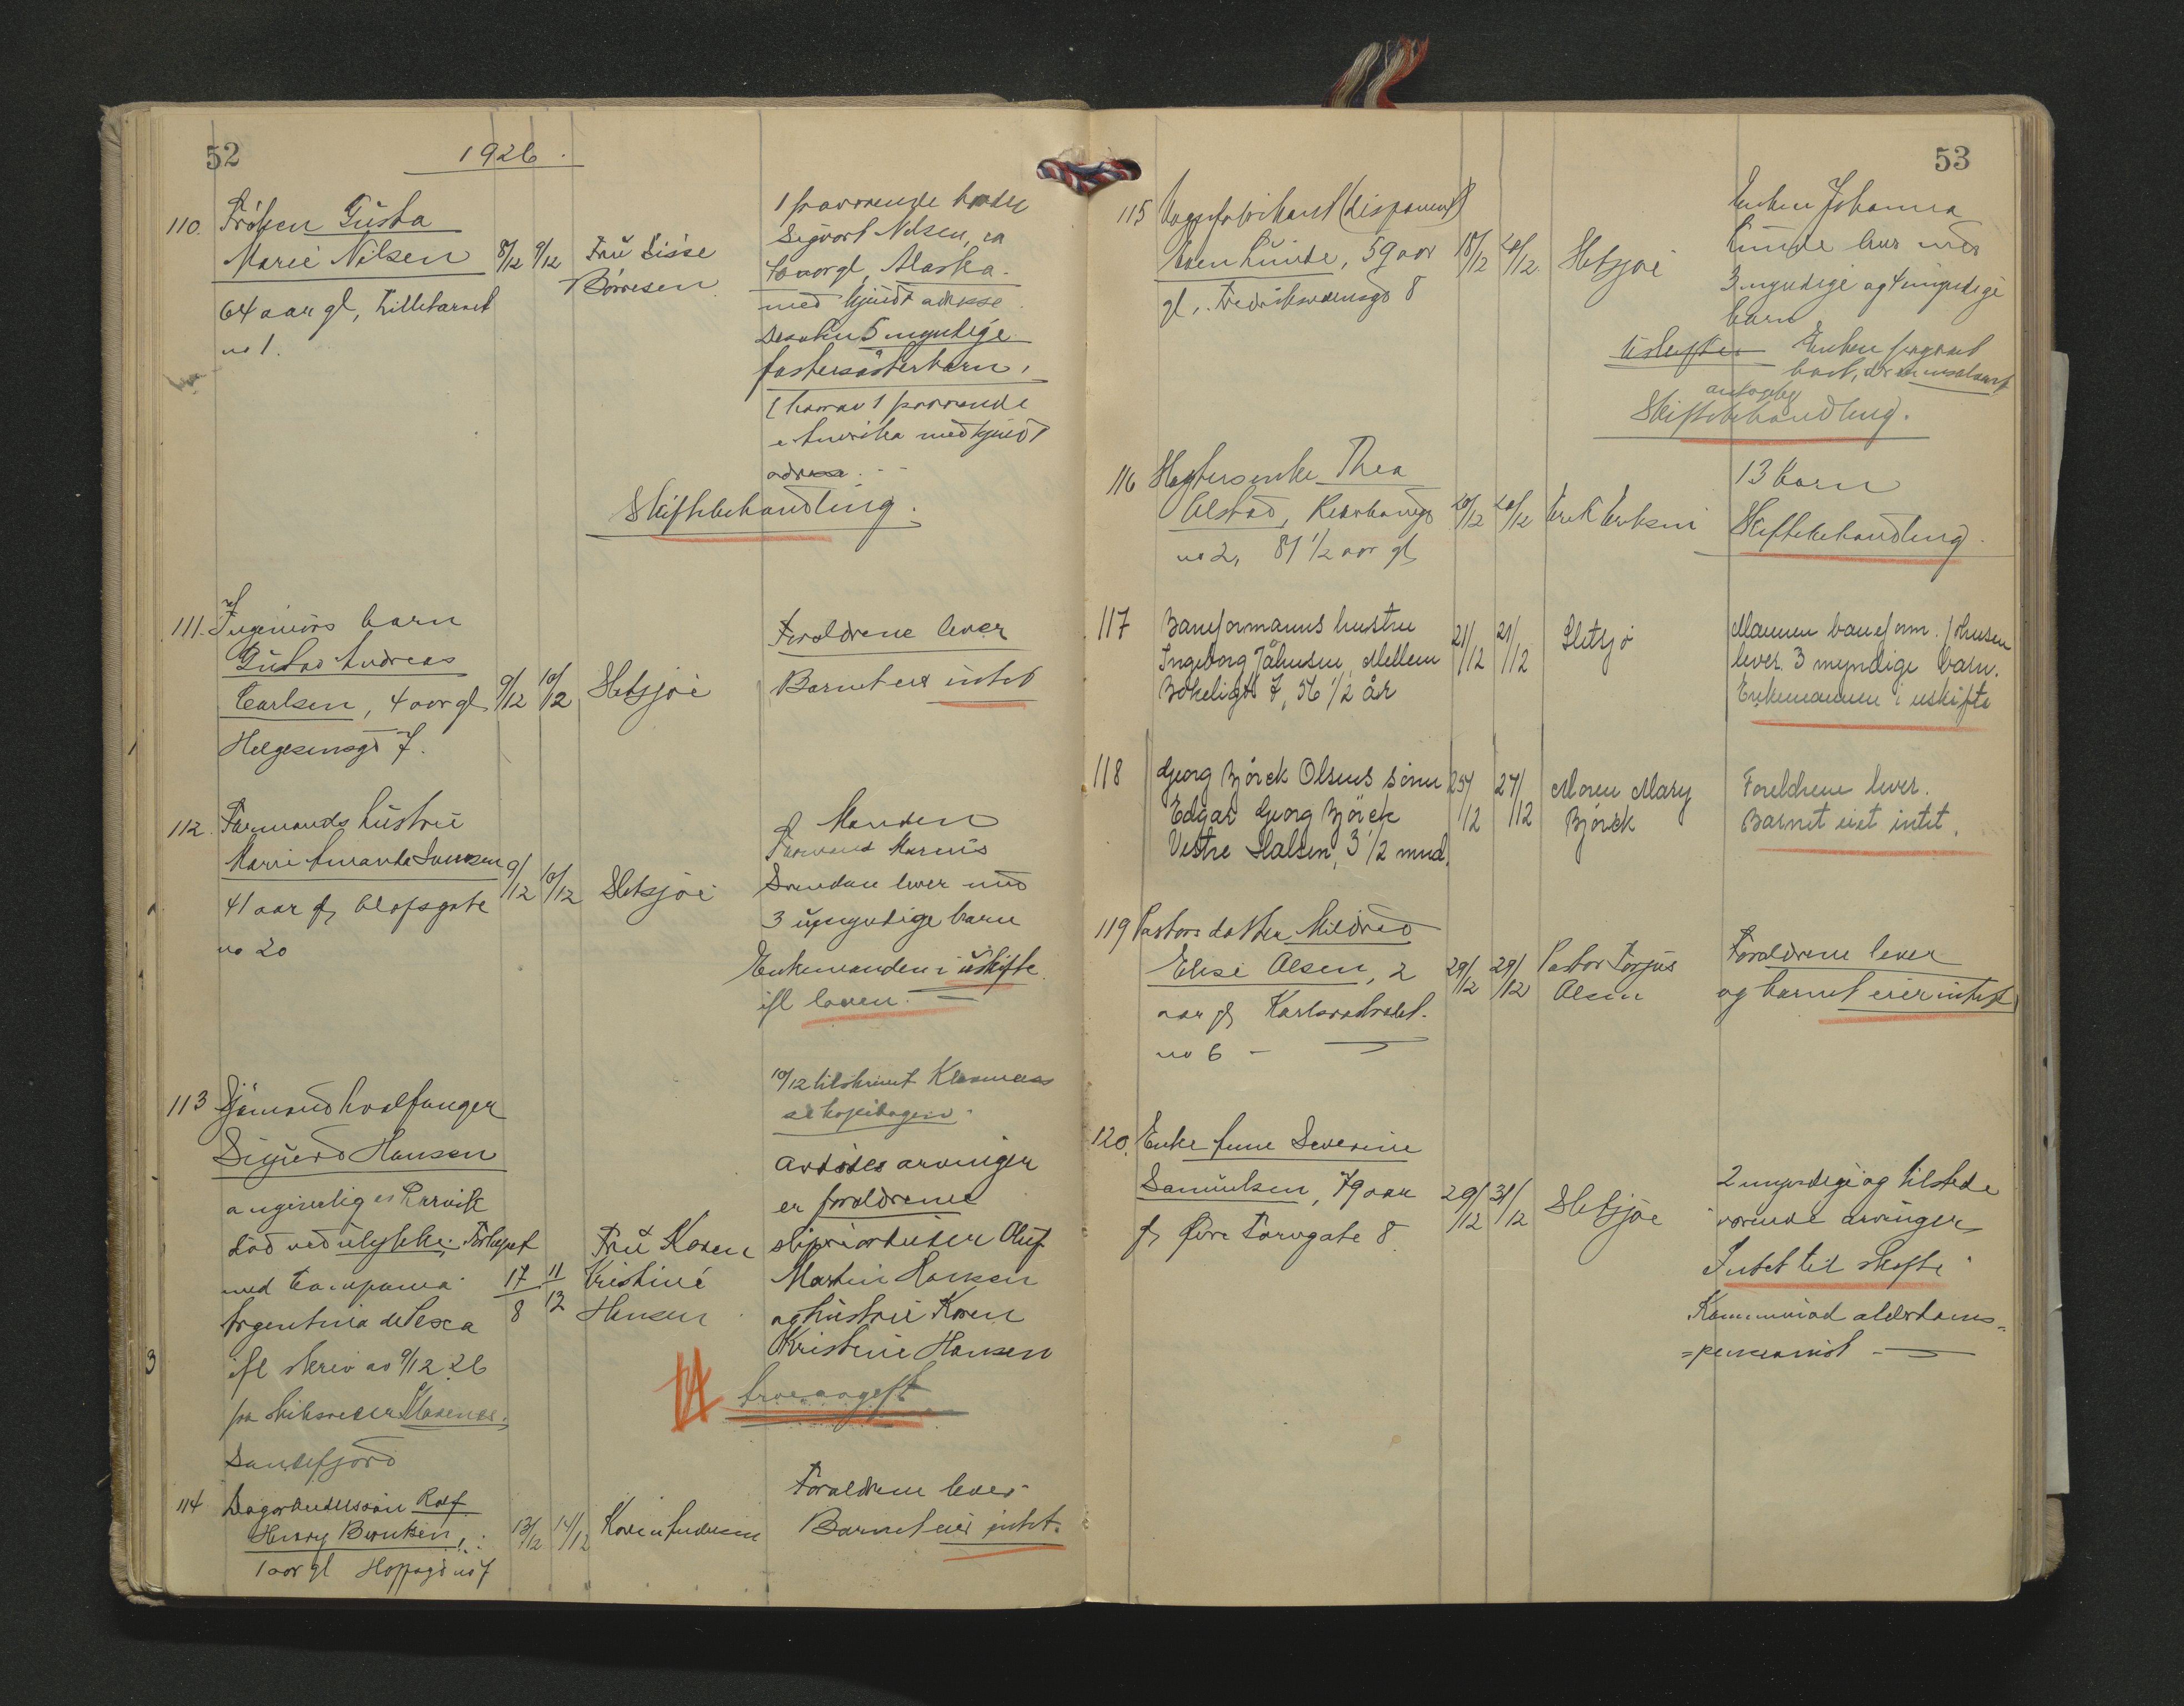 52
1926.
110. Frøken Gusta
Marie Nilsen 8/12 9/12 Fru Sisse
Børresen
64 aar gl, Lilletorvet
no 1.
1 fraværende broder
Sigvart Nilsen, ca
aar gl, Alaska.
med adresse.
Desuten 5 myndige
søsterbarn,
(hvorav 1 fraværende
i Amerika med kjendt
adresse.
Skiftebehandling.
111. Ingeniørs barn
Gustav Andreas
Carlsen, 4 aar gl 9/12 10/12 Sletsjøe
Helgesensgd 7.
Forældrene lever
Barnet eier intet
112. Formands hustru
Marie Amanda Svendsen 9/12 10/12 Sletsjøe
41 aar gl, Olafsgate
no 20
Manden
Formand Marius
Svendsen lever med
3 umyndige barn
Enkemanden i uskifte
ifl loven.
113 Sjømand hvalfanger
Sigurd Hansen
angivelig av Larvik
død ved ulykke. Forhyret
med Compania
Argentina de Pesca 17/8 11/12 Fru Karen
Kristine
Hansen
ifl skriv av 9/12 26
fra skibsreder Klaveness,
Sandefjord
10/12 tilskrevet Klaveness
se kopibogen.
Avdødes arvinger
er forældrene
sliperiarbeider Oluf
Martin Hansen
og hustru Karen
Kristine Hansen
Arveavgift
114 Dagarbeiderssøn Rolf
Henry Berntsen, 13/12 14/12 Karen Andersen
1 aar gl no 7
Forældrene lever
Barnet eier intet.
53
115 Vognfabrikant (disponent)
Lunde, 59 aar 18/12 20/12 Sletsjøe
gl, Fredriksværnsgd 8
Enken Johanna
Lunde lever med
3 myndige og 4 umyndige
barn
Uskifte Enken
bort, da insolvent
antagelig
Skiftebehandling.
116 Thea
Olstad, no 2, 81 1/2 aar gl 20/12 20/12 Erik Eriksen
13 barn
Skiftebehandling.
117 Baneformanns hustru
Ingeborg Johnsen, Mellem 21/12 21/12 Sletsjø
Bøkeligt 7, 56 1/2 år
Mannen baneform. Johnsen
lever. 3 myndige barn.
Enkemannen i uskifte
118 Georg Bjørck Olsens sønn 25/12 27/12 Moren Mary
Edgar Georg Bjørck Bjørck
Vestre Halsen, 3 1/2 mnd.
Foreldrene lever.
Barnet eiet intet.
119 Pastors datter Mildred
Elise Olsen, 2 29/12 29/12 Pastor Torjus
Olsen
aar gl,
no 6 -
Forældrene lever
og barnet eier intet
120. Enke Anne Severine
Samuelsen, 79 aar 29/12 31/12 Sletsjøe
gl, Øvre Torvgate 8
2 myndige og tilstede
værende arvinger
Intet til skifte
Kommunal alderdoms=
=pensionist